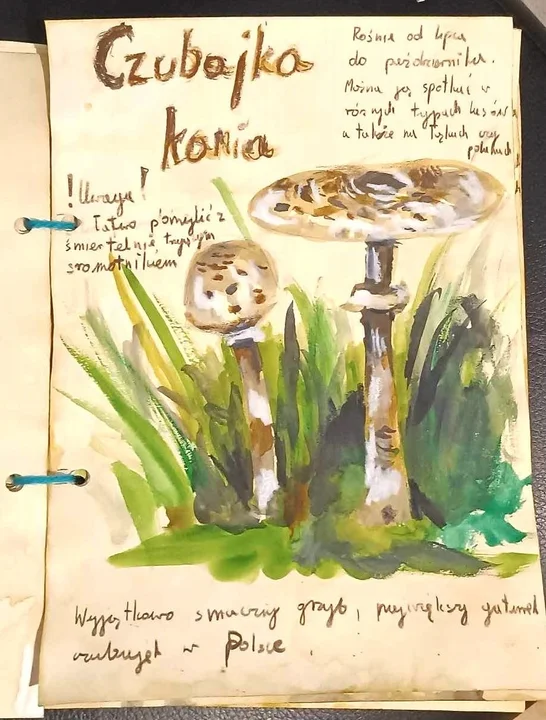 Czubajka
kania
Rośnie od lipca
do października.
Można ją spotkać w
różnych typach lasów
a także na łąkach czy
polanach
! Uwaga !
Łatwo pomylić z
śmiertelnie trującym
sromotnikiem
Wyjątkowo smaczny grzyb, największy gatunek
czubajek w Polsce.